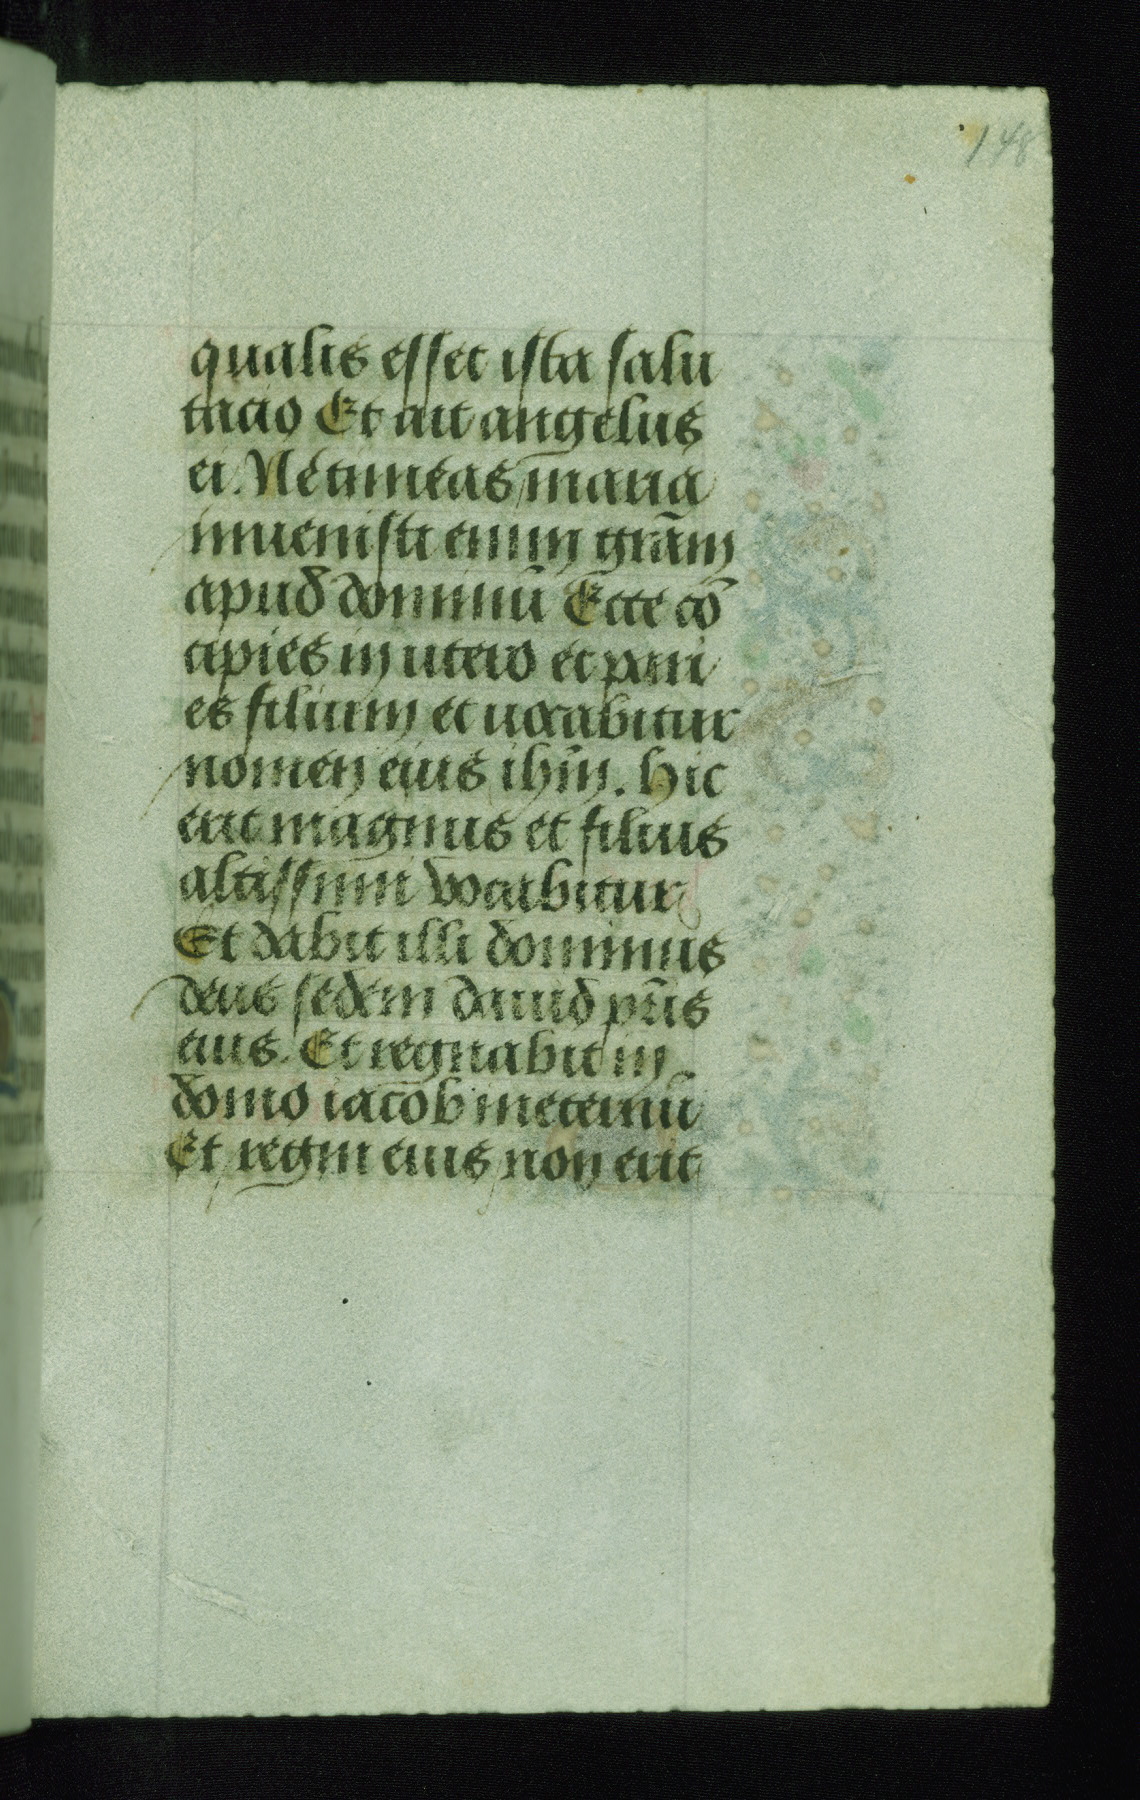 148
qualis esset ista salu
tacio Et ait angelus
ei. Ne timeas maria
inuenisti enim grām
apud dominū Ecce cō
cipies in utero et pari
es filium et uocabitur
nomen eius ihm̄. hic
erit magnus et filius
altissimi vocabitur
Et dabit illi dominus
deus sedem dauid pr̄is
eius. Et regnabit in
domo iacob ineternū
Et regni eius non erit